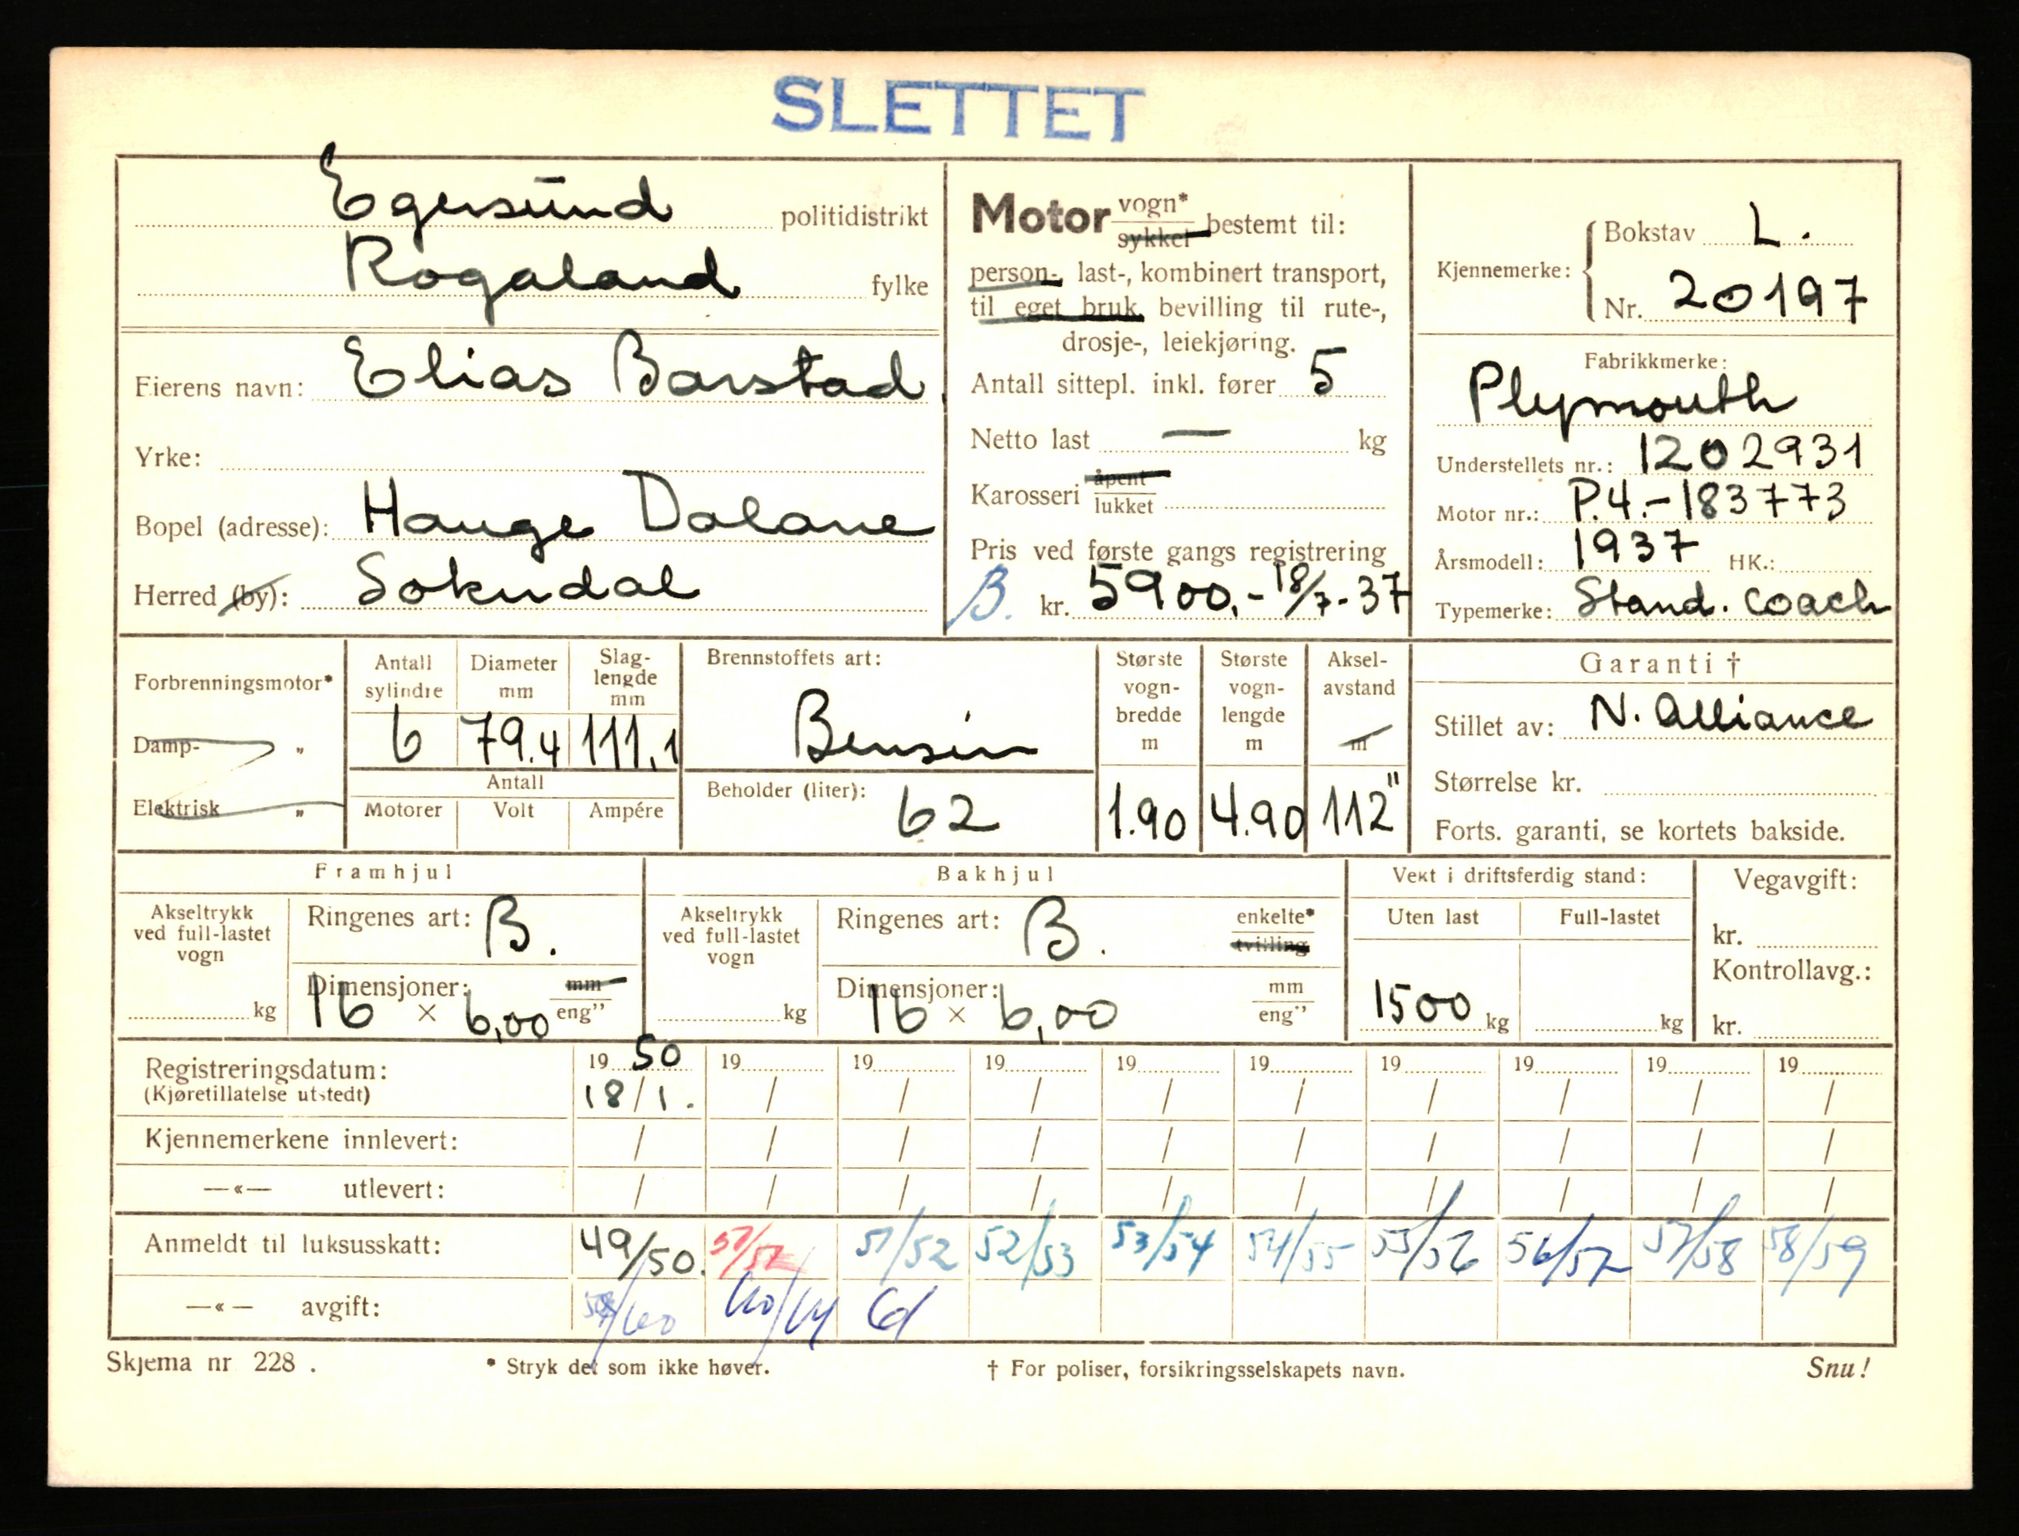 SLETTET
Egersund politidistrikt
Rogaland fylke
Eierens navn: Elias Barstad.
Yrke:
Bopel (adresse): Hauge Dalane
Herred (by): Sokndal
Motor vogn* sykkel bestemt til:
person-, last-, kombinert transport,
til eget bruk, bevilling til rute-,
drosje-, leiekjøring.
Antall sittepl. inkl. fører 5
Netto last — kg
Karosseri åpent lukket
Pris ved første gangs registrering
B. kr. 5900,- 18/7-37
Kjennemerke: Bokstav L.
Nr. 20197
Fabrikkmerke:
Plymouth
Understellets nr.: 1202931
Motor nr.: P.4.-183773
Årsmodell: 1937 HK.:
Typemerke: Stand. coach
Forbrenningsmotor*
Damp- „
Elektrisk „
Antall sylindre
6
Diameter mm
79.4
Slag-lengde mm
111.1
Antall
Motorer Volt Ampére
Brennstoffets art:
Bensin
Beholder (liter): 62
Største vogn-bredde m
1.90
Største vogn-lengde m
4.90
Aksel-avstand m
112"
Garanti †
Stillet av: N. Alliance
Størrelse kr.
Forts. garanti, se kortets bakside.
Framhjul
Akseltrykk ved full-lastet vogn
kg
Ringenes art: B.
Dimensjoner: mm
16 × 6,00 eng"
Bakhjul
Akseltrykk ved full-lastet vogn
kg
Ringenes art: B. enkelte* tvilling
Dimensjoner: mm
16 × 6,00 eng"
Vekt i driftsferdig stand:
Uten last Full-lastet
1500 kg kg
Vegavgift:
kr.
Kontrollavg.:
kr.
Registreringsdatum: 19 50 19 19 19 19 19 19 19 19 19
(Kjøretillatelse utstedt) 18/1. / / / / / / / / /
Kjennemerkene innlevert: / / / / / / / / / /
—«— utlevert: / / / / / / / / / /
Anmeldt til luksusskatt: 49/50. 51/52 51/52 52/53 53/54 54/55 55/56 56/57 57/58 58/59
—«— avgift: 59/60 60/61 61
Skjema nr 228 . * Stryk det som ikke høver. † For poliser, forsikringsselskapets navn. Snu!